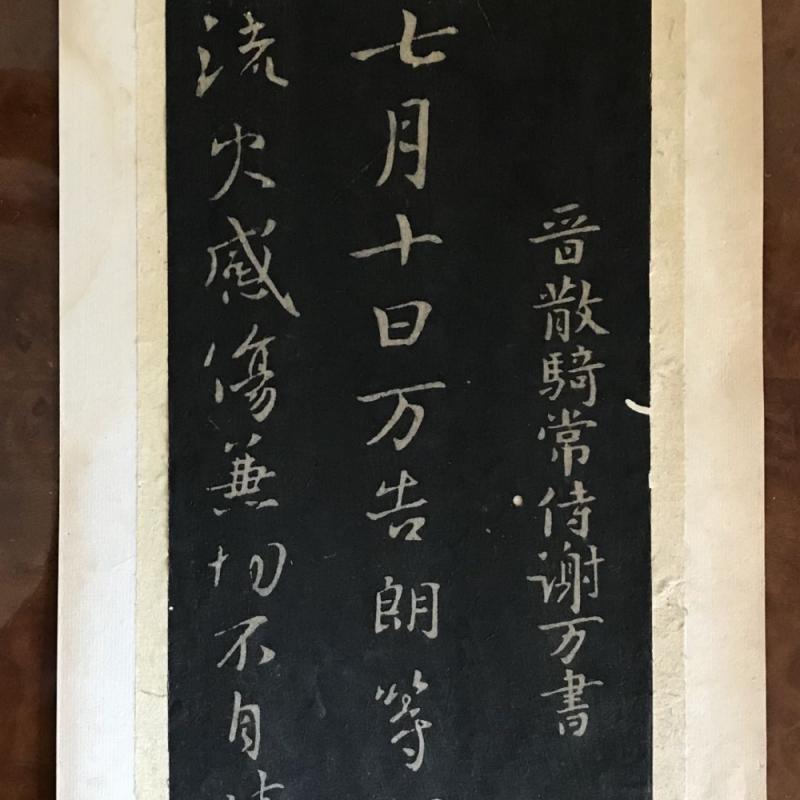 晉散騎常侍謝万書
七月十日万告朗等
流火感傷兼切不自